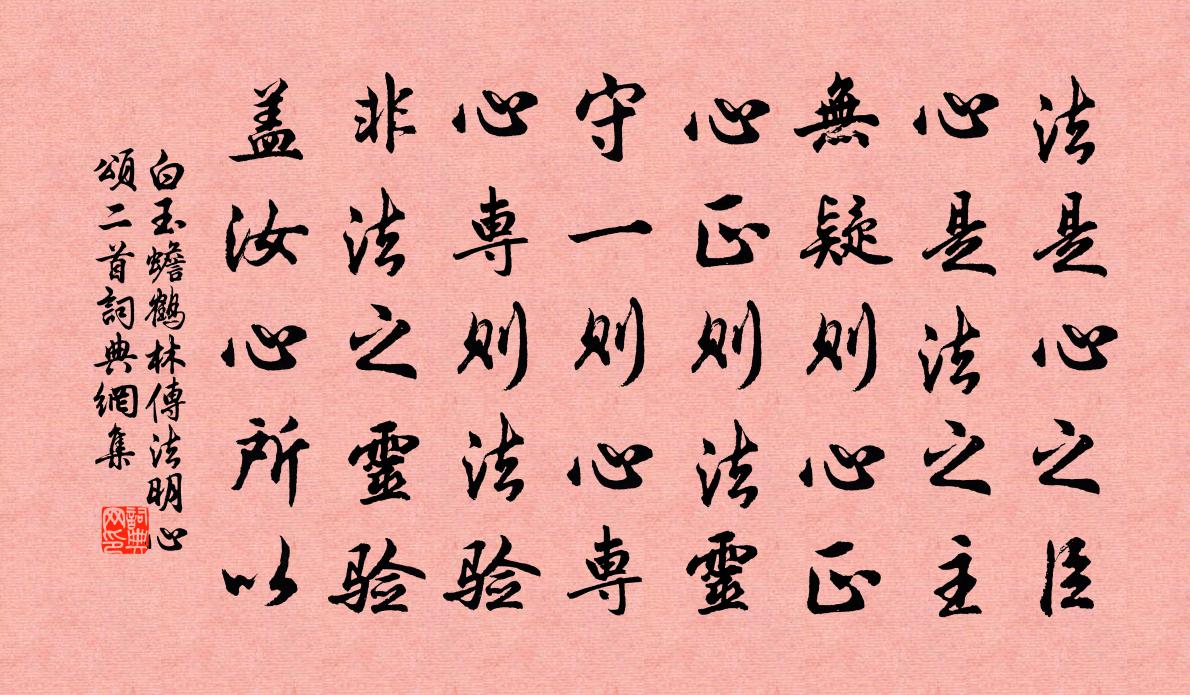 法是心之臣
心是法之主
無疑則心正
心正則法靈
守一則心専
心専則法验
非法之靈验
盖汝心所以
白玉蟾鶴林傳法明心
頌二首詞典網集
詞典
网印